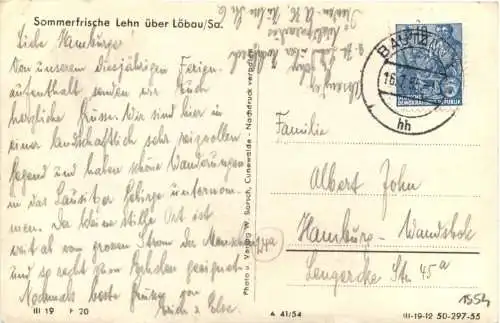 Sommerfrische Lehn über Löbau/Sa.
Liebe Hamburger!
Von unserem diesjährigen Ferien-
aufenthalt senden wir Euch
herzliche Grüsse. Wir sind hier in
einer landschaftlich sehr reizvollen
Gegend und haben schöne Wanderungen
in das Lausitzer Gebirge unternom-
men. Der kleine stille Ort ist
weit ab vom grossen Strom der
und so recht zum Erholen geeignet.
Nochmals beste Grüsse von
Erich u. Else.
III 19 F 20
Photo u. Verlag W. Barsch, Cunewalde - Nachdruck verboten
A 41/54
BAUTZEN
hh
DEUTSCHE
DEMOKRATISCHE REPUBLIK
Familie
Albert John
Hamburg-Wandsbek
Str. 45a
1554
III-19-12 50-297-55